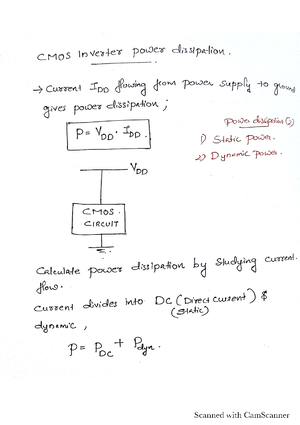 CMOS Inverter power dissipation.
→ Current IDD flowing from power supply to ground
gives power dissipation ;
P = VDD · IDD.
Power dissipation (2)
1) Static power.
2) Dynamic power.
VDD
CMOS.
CIRCUIT
Calculate power dissipation by studying current
flow.
Current divides into DC (Direct current) &
(Static)
dynamic ,
P = PDC + Pdyn.
Scanned with CamScanner